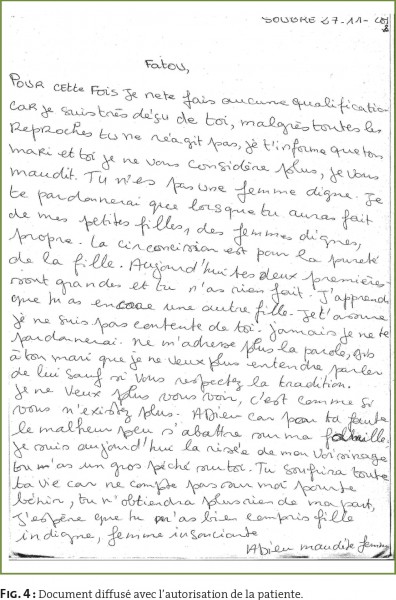 SOUBRE 27-11-
Fatou,
POUR Cette Fois Je ne te fais aucune qualification
car je suis très déçu de toi, malgrès toutes les
Reproches tu ne réagit pas, je t'informe que ton
mari et toi je ne vous considère plus, je vous
maudit. Tu n'es pas une femme digne. Je
te pardonnerai que lorsque tu auras fait
de mes petites filles, des femmes dignes,
propre. La circoncision est pour la pureté
de la fille. Aujourd'hui tes deux premières
sont grandes et tu n'as rien fait. J'apprends
que tu as encore une autre fille. Je t'assure
je ne suis pas contente de toi. jamais je ne te
pardonnerai. ne m'adresse plus la parole, dis
à ton mari que je ne veux plus entendre parler
de lui sauf si vous respectez la tradition.
Je ne veux plus vous voir, c'est comme si
vous n'existez plus. ADieu car par ta faute
le malheur peu s'abattre sur ma famille.
Je suis aujourd'hui la risée de mon voisinage
tu m'as un gros péché sur toi. Tu soufrira toute
ta vie car ne compte pas sur moi pour te
bénir, tu n'obtiendra plus rien de ma part,
J'espère que tu m'as bien compris fille
indigne, femme insonciante
ADieu maudite femme
FIG. 4 : Document diffusé avec l'autorisation de la patiente.